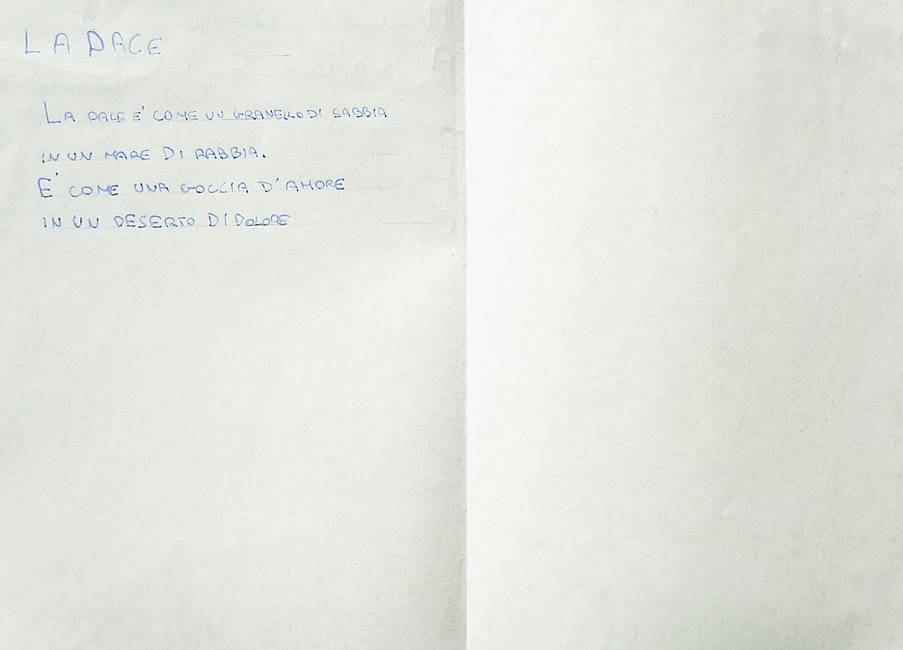 LA PACE
LA PACE E' COME UN GRANELLO DI SABBIA
IN UN MARE DI RABBIA.
E' COME UNA GOCCIA D'AMORE
IN UN DESERTO DI DOLORE